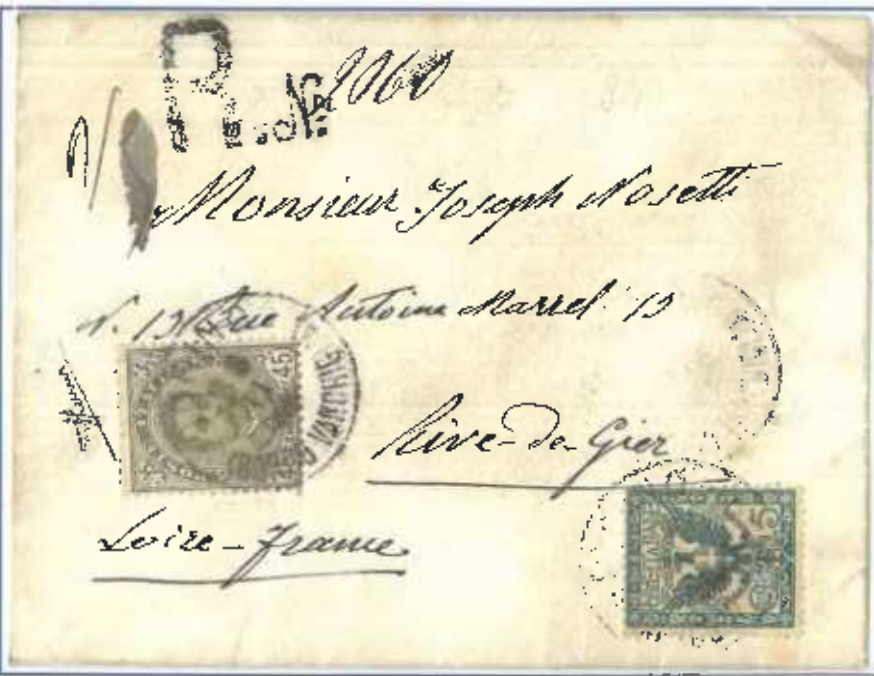 R
N° 2060
Monsieur Joseph Nosetti
N. 13 Rue Antoine Marrel 13
45
Rive-de-Gier
Loire - France
5